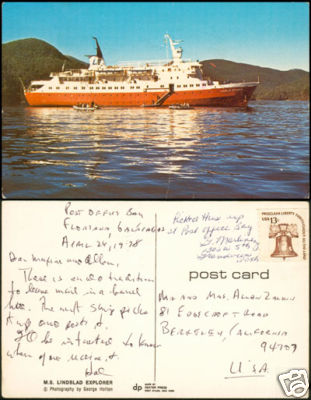 Post Office Bay
Floreana Galapagos
April 24, 1978
Dear and Allen.
There is an old tradition
to leave mail in a barrel
here. The next ship picks
it up and posts it.
I'll be interested to know
when you receive it.
Hal
Picked this up
at Post Office Bay
post card
PROCLAIM LIBERTY
USA 13c
Mr. and Mrs. Allan
81 Edgecroft Road
Berkeley, California
94707
USA
M.S. LINDBLAD EXPLORER
© Photography by George Holton
dp
ebY